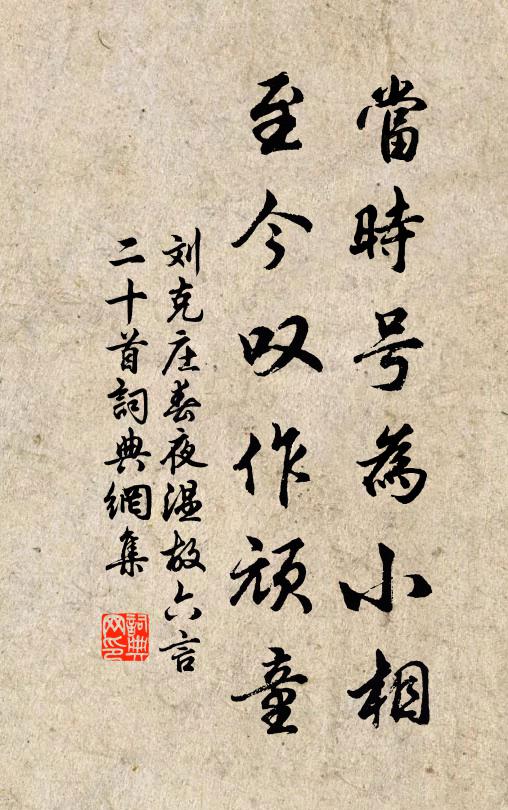 當時号為小相
至今叹作顽童
刘克庄春夜温故六言
二十首詞典網集
詞典网印